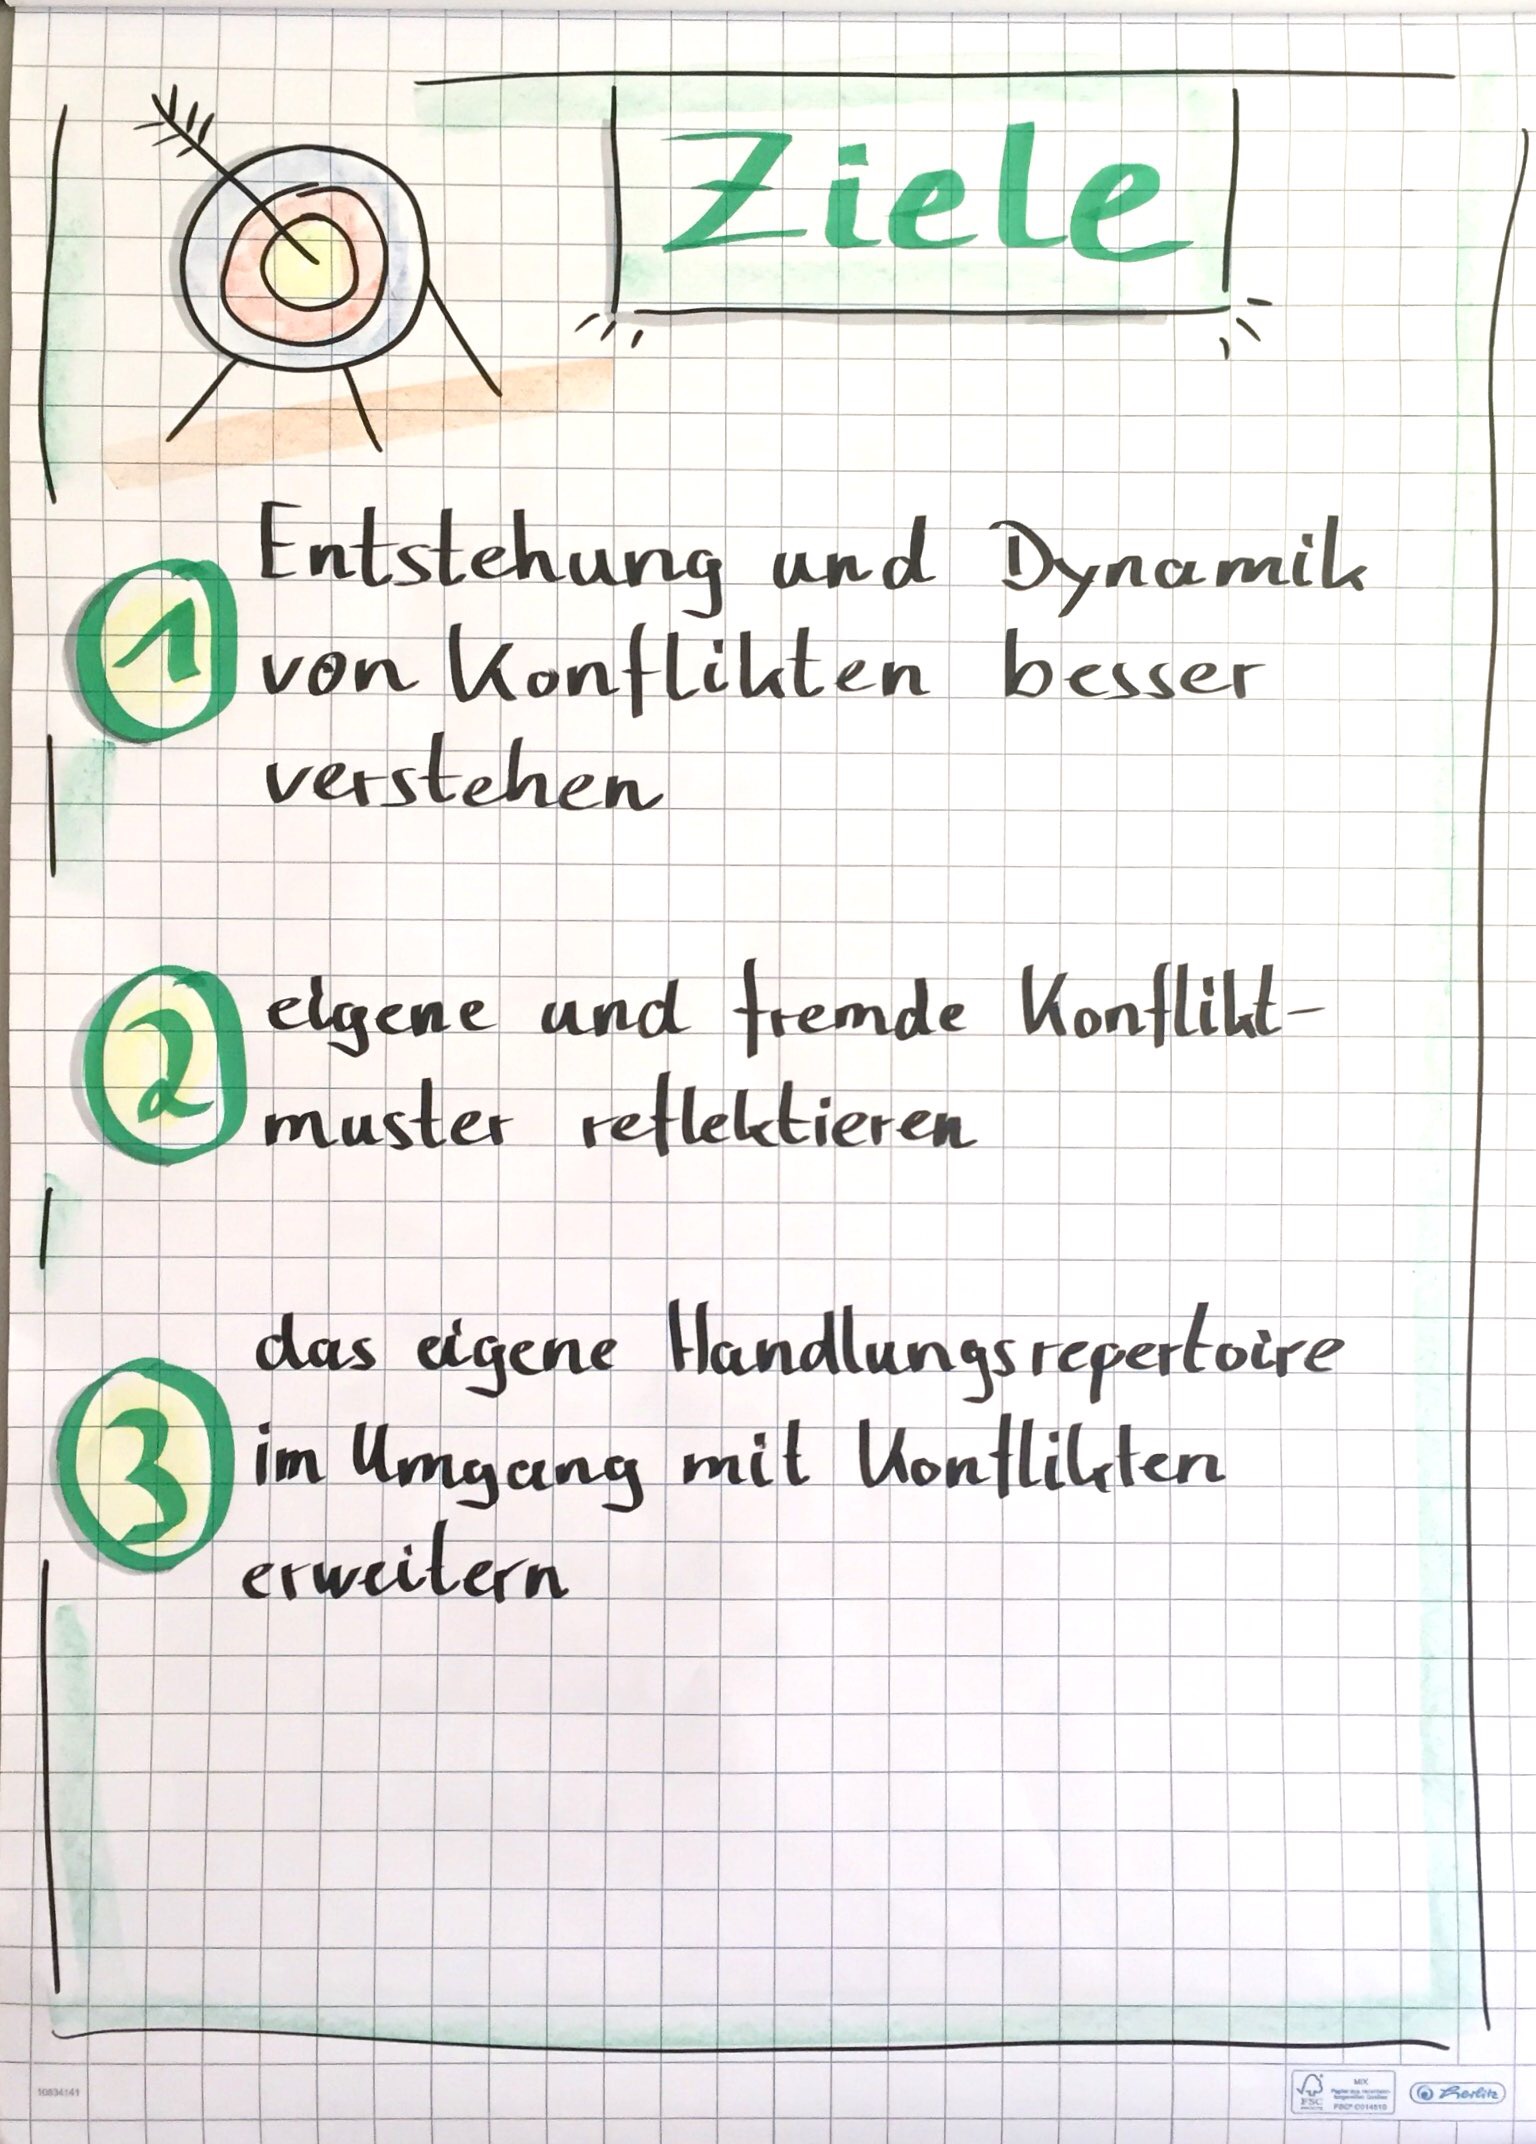 Ziele
1
Entstehung und Dynamik
von Konflikten besser
verstehen
2
eigene und fremde Konflikt-
muster reflektieren
3
das eigene Handlungsrepertoire
im Umgang mit Konflikten
erweitern
10834141
FSC
MIX
FSC® C014519
herlitz